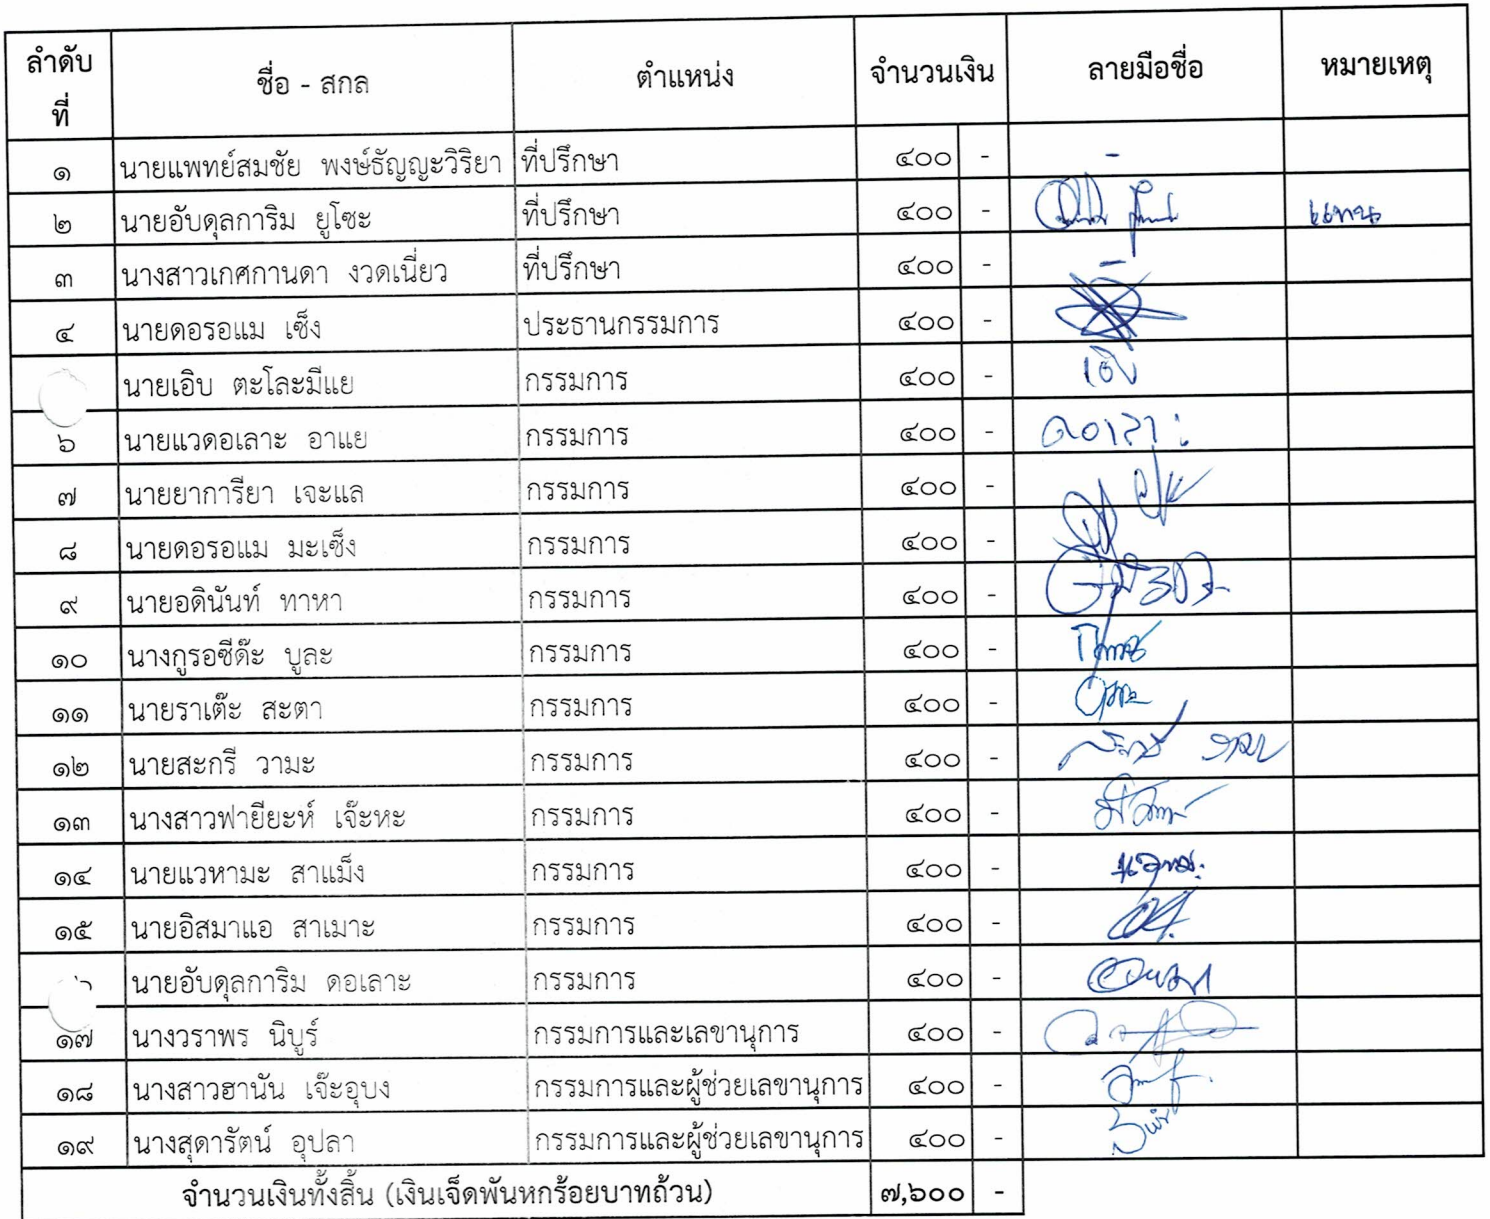 ลำดับที่ ชื่อ - สกล ตำแหน่ง จำนวนเงิน ลายมือชื่อ หมายเหตุ
๑ นายแพทย์สมชัย พงษ์ธัญญะวิริยา ที่ปรึกษา ๔๐๐ - -
๒ นายอับดุลการิม ยูโซะ ที่ปรึกษา ๔๐๐ - แทน
๓ นางสาวเกศกานดา งวดเนี่ยว ที่ปรึกษา ๔๐๐ - -
๔ นายดอรอแม เซ็ง ประธานกรรมการ ๔๐๐ -
นายเอิบ ตะโละมีแย กรรมการ ๔๐๐ - เอิบ
๖ นายแวดอเลาะ อาแย กรรมการ ๔๐๐ - ดอเลาะ
๗ นายยาการียา เจะแล กรรมการ ๔๐๐ -
๘ นายดอรอแม มะเซ็ง กรรมการ ๔๐๐ -
๙ นายอดินันท์ ทาหา กรรมการ ๔๐๐ -
๑๐ นางกูรอซีด๊ะ บูละ กรรมการ ๔๐๐ -
๑๑ นายราเต๊ะ สะตา กรรมการ ๔๐๐ -
๑๒ นายสะกรี วามะ กรรมการ ๔๐๐ -
๑๓ นางสาวฟายียะห์ เจ๊ะหะ กรรมการ ๔๐๐ -
๑๔ นายแวหามะ สาแม็ง กรรมการ ๔๐๐ -
๑๕ นายอิสมาแอ สาเมาะ กรรมการ ๔๐๐ -
นายอับดุลการิม ดอเลาะ กรรมการ ๔๐๐ -
๑๗ นางวราพร นิบูร์ กรรมการและเลขานุการ ๔๐๐ -
๑๘ นางสาวฮานัน เจ๊ะอุบง กรรมการและผู้ช่วยเลขานุการ ๔๐๐ -
๑๙ นางสุดารัตน์ อุปลา กรรมการและผู้ช่วยเลขานุการ ๔๐๐ -
จำนวนเงินทั้งสิ้น (เงินเจ็ดพันหกร้อยบาทถ้วน) ๗,๖๐๐ -